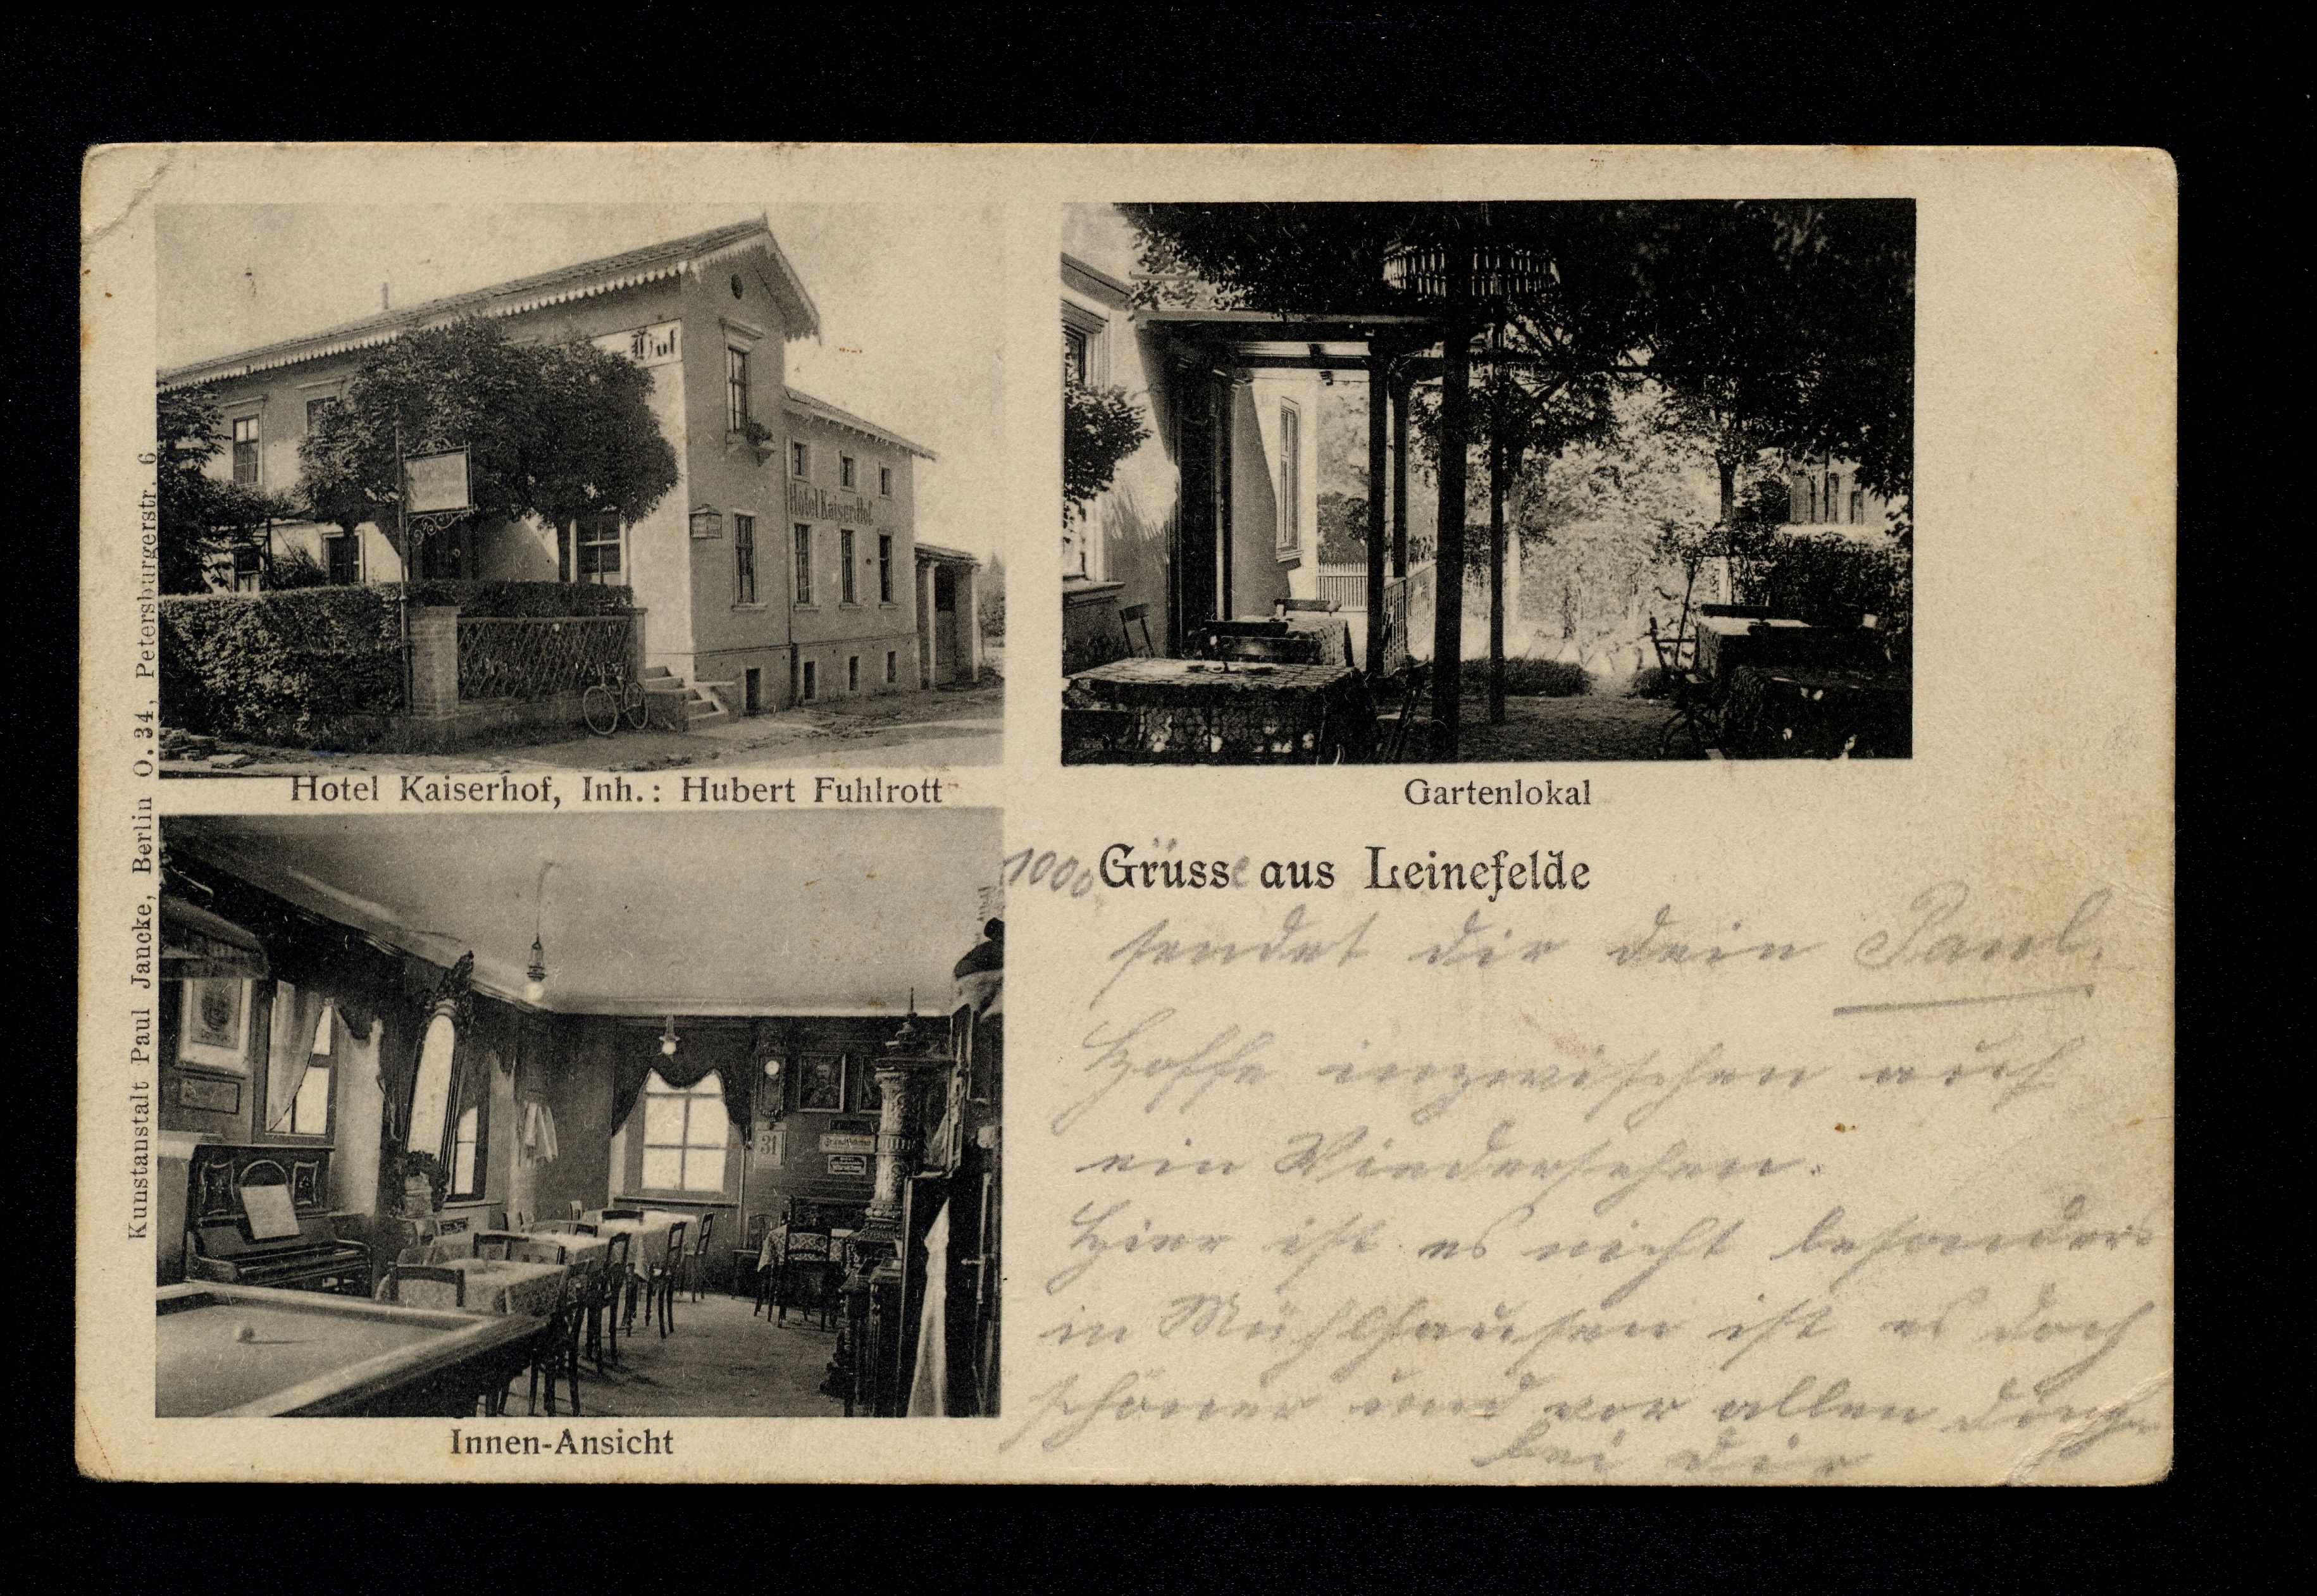 Hof
Hotel KaiserHof
Hotel Kaiserhof, Inh.: Hubert Fuhlrott
Gartenlokal
Kunstanstalt Paul Jancke, Berlin O. 34, Petersburgerstr. 6
31
Innen-Ansicht
1000 Grüsse aus Leinefelde
sendet dir dein Paul.
Hoffe inzwischen auch
ein Wiedersehen.
Hier ist es nicht besonders
in Mühlhausen ist es doch
schöner und vor allen
bei dir